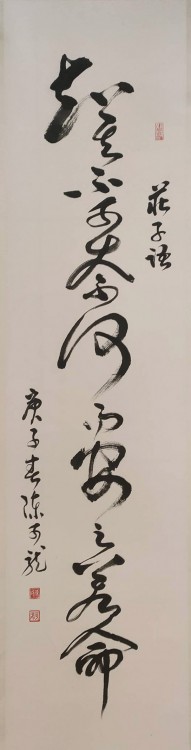 知其不可奈何而安之若命
莊子語
庚子春陳可龍